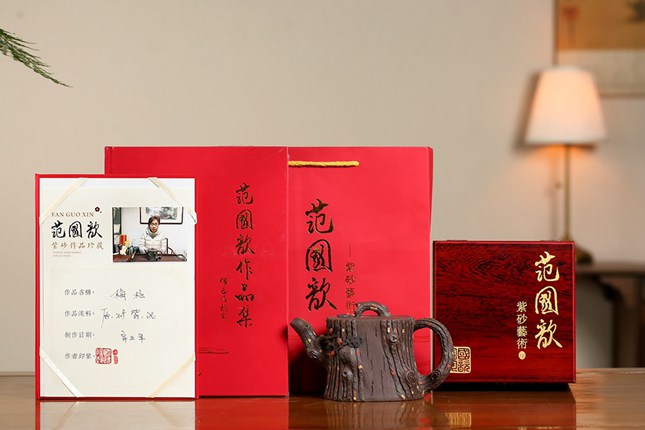 FAN GUO XIN
范國歆
紫砂作品珍藏
作品名稱：梅樁
作品泥料：
制作日期：辛丑年
作者印鑒：
范國歆作品集
范國歆
紫砂藝術
范國歆
紫砂藝術